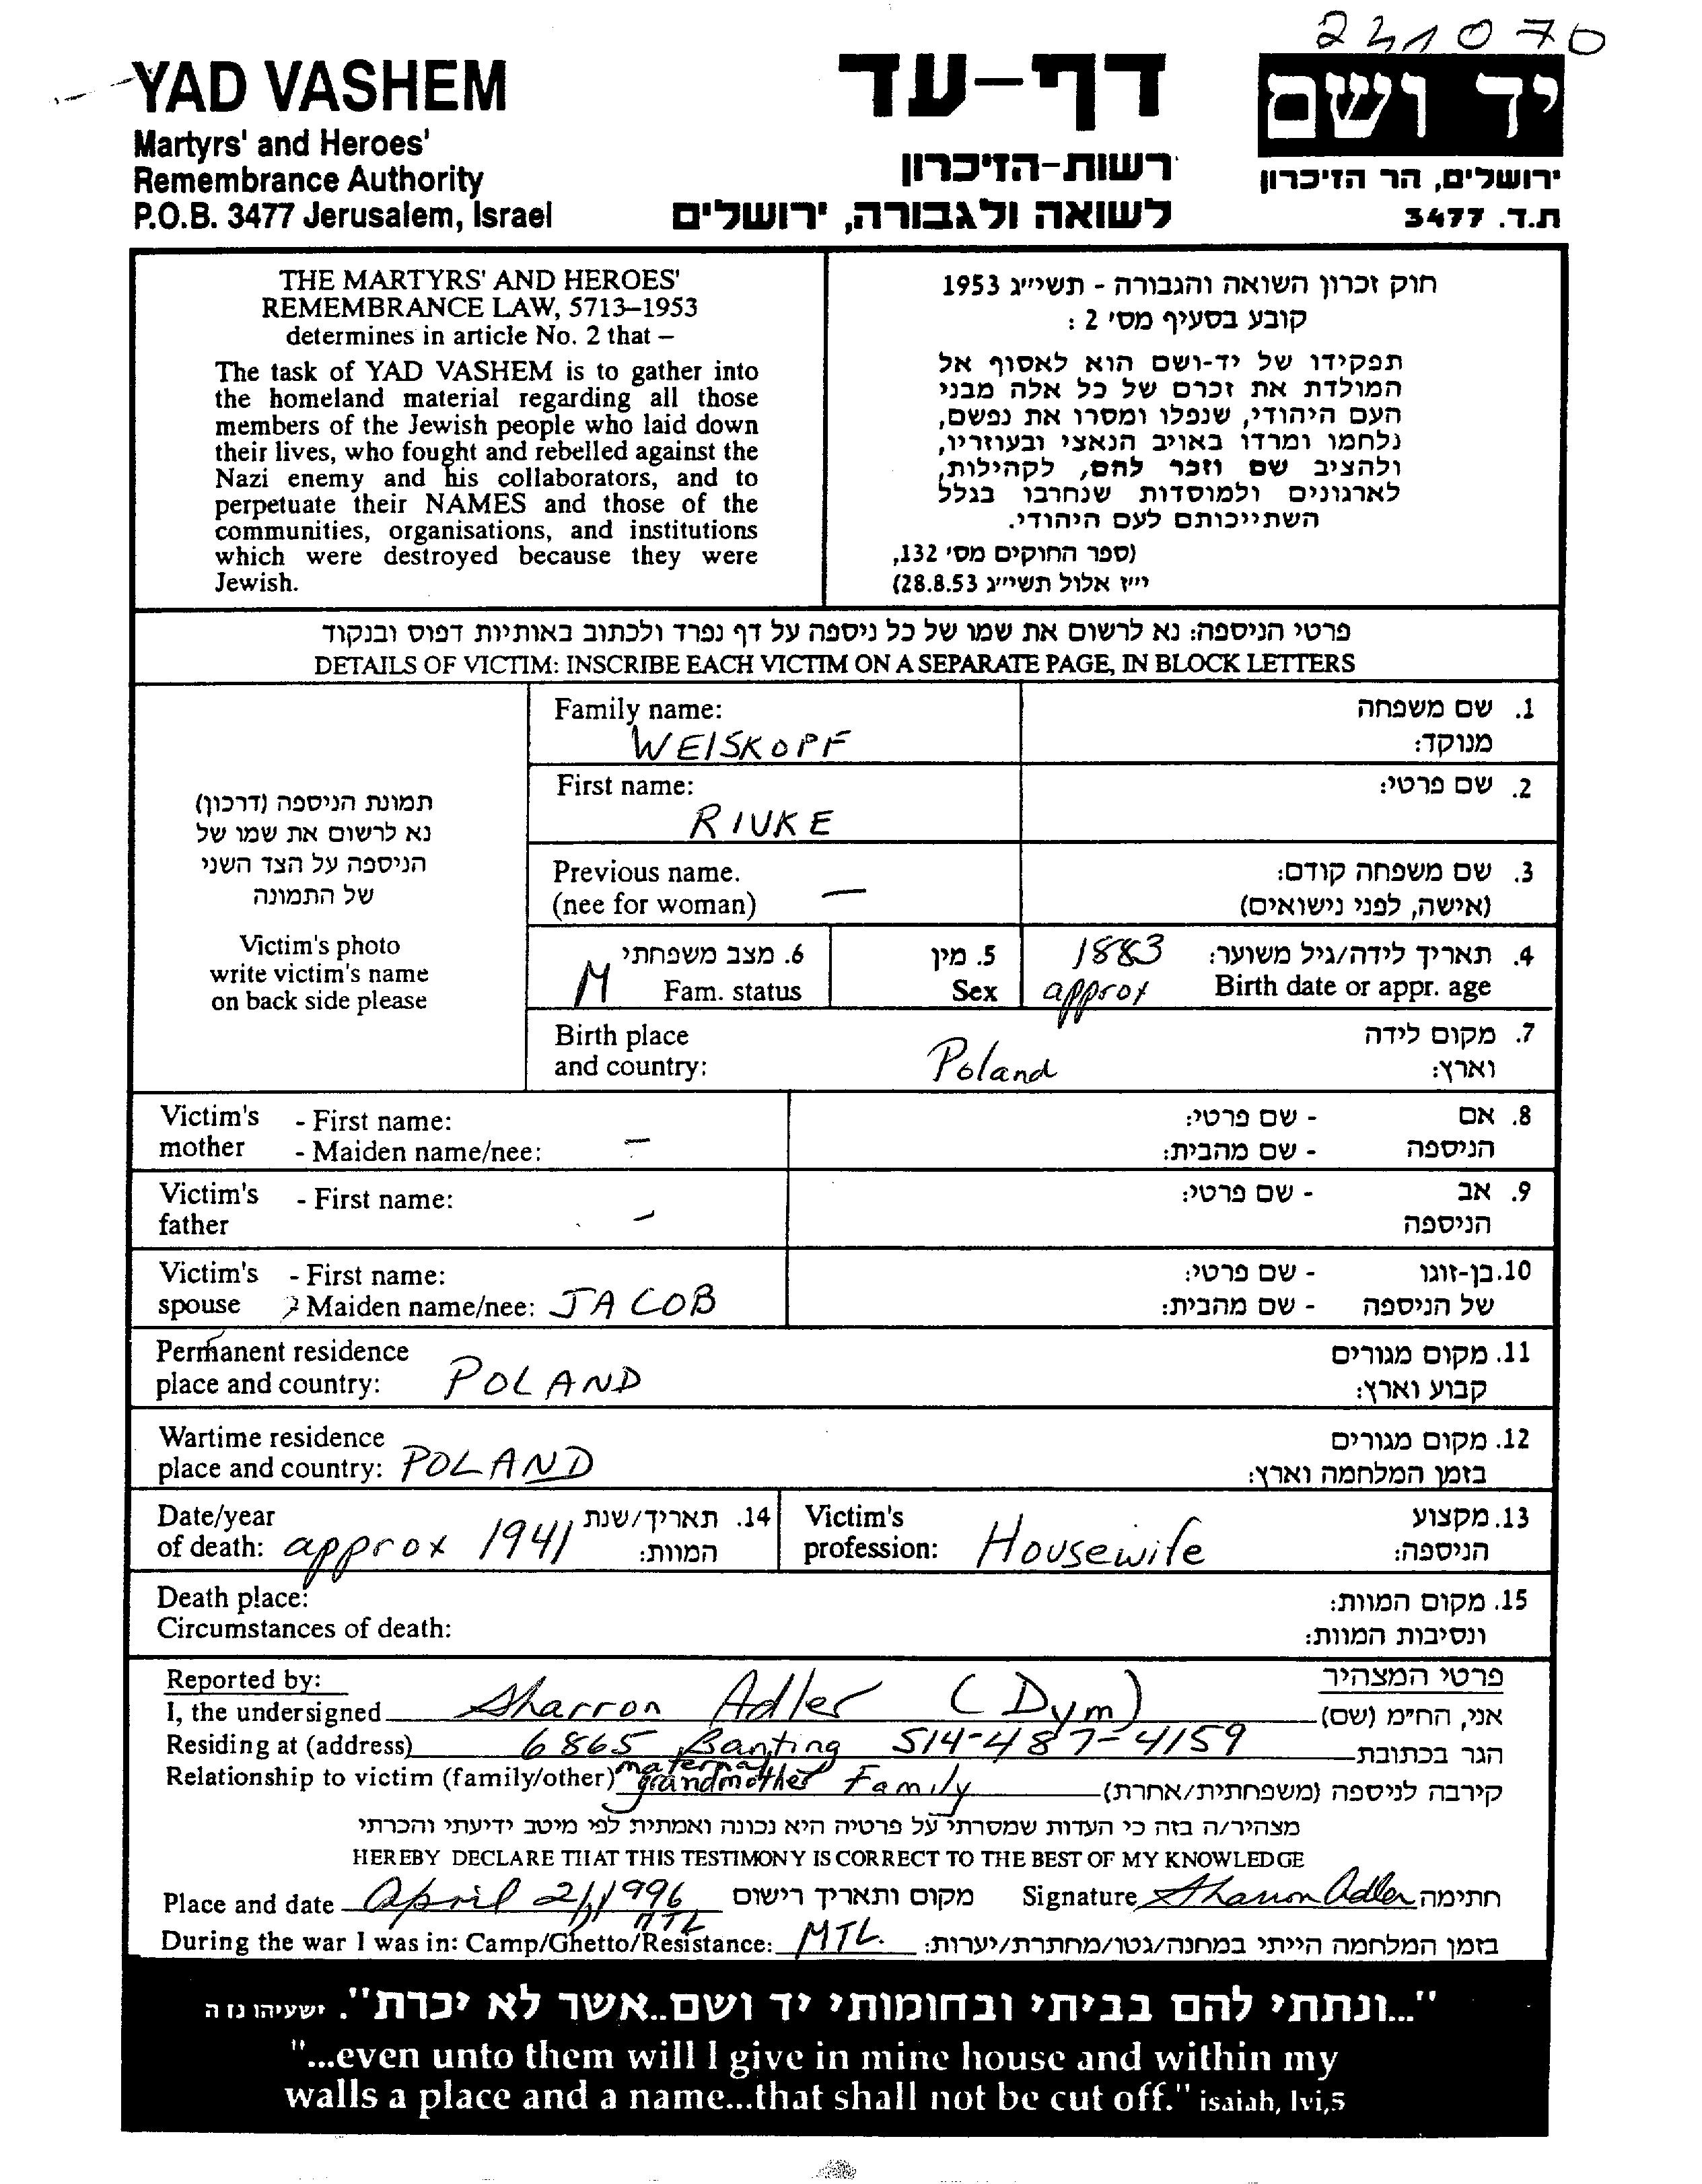 231070
YAD VASHEM
Martyrs' and Heroes'
Remembrance Authority
P.O.B. 3477 Jerusalem, Israel
דף-עד
רשות-הזיכרון
לשואה ולגבורה, ירושלים
יד ושם
ירושלים, הר הזיכרון
ת.ד. 3477
THE MARTYRS' AND HEROES'
REMEMBRANCE LAW, 5713–1953
determines in article No. 2 that –
The task of YAD VASHEM is to gather into
the homeland material regarding all those
members of the Jewish people who laid down
their lives, who fought and rebelled against the
Nazi enemy and his collaborators, and to
perpetuate their NAMES and those of the
communities, organisations, and institutions
which were destroyed because they were
Jewish.
חוק זכרון השואה והגבורה - תשי״ג 1953
קובע בסעיף מס׳ 2 :
תפקידו של יד-ושם הוא לאסוף אל
המולדת את זכרם של כל אלה מבני
העם היהודי, שנפלו ומסרו את נפשם,
נלחמו ומרדו באויב הנאצי ובעוזריו,
ולהציב שם וזכר להם, לקהילות,
לארגונים ולמוסדות שנחרבו בגלל
השתייכותם לעם היהודי.
(ספר החוקים מס׳ 132,
י״ז אלול תשי״ג 28.8.53)
פרטי הניספה: נא לרשום את שמו של כל ניספה על דף נפרד ולכתוב באותיות דפוס ובנקוד
DETAILS OF VICTIM: INSCRIBE EACH VICTIM ON A SEPARATE PAGE, IN BLOCK LETTERS
תמונת הניספה (דרכון)
נא לרשום את שמו של
הניספה על הצד השני
של התמונה
Victim's photo
write victim's name
on back side please
Family name:
WEISKOPF
1. שם משפחה
מנוקד:
First name:
RIVKE
2. שם פרטי:
Previous name.
(nee for woman) —
3. שם משפחה קודם:
(אישה, לפני נישואים)
6. מצב משפחתי
M Fam. status
5. מין
Sex
1883 4. תאריך לידה/גיל משוער:
approx Birth date or appr. age
Birth place
and country: Poland
7. מקום לידה
וארץ:
Victim's - First name:
mother - Maiden name/nee: —
8. אם - שם פרטי:
הניספה - שם מהבית:
Victim's - First name:
father —
9. אב - שם פרטי:
הניספה
Victim's - First name:
spouse - Maiden name/nee: JACOB
10. בן-זוגו - שם פרטי:
של הניספה - שם מהבית:
Permanent residence
place and country: POLAND
11. מקום מגורים
קבוע וארץ:
Wartime residence
place and country: POLAND
12. מקום מגורים
בזמן המלחמה וארץ:
Date/year
of death: approx 1941
14. תאריך/שנת
המוות:
Victim's
profession: Housewife
13. מקצוע
הניספה:
Death place:
Circumstances of death:
15. מקום המוות:
ונסיבות המוות:
Reported by: פרטי המצהיר
I, the undersigned Sharron Adler (Dym) אני, הח״מ (שם)
Residing at (address) 6865 Banting 514-487-4159 הגר בכתובת
Relationship to victim (family/other) maternal grandmother Family קירבה לניספה (משפחתית/אחרת)
מצהיר/ה בזה כי העדות שמסרתי על פרטיה היא נכונה ואמתית לפי מיטב ידיעתי והכרתי
HEREBY DECLARE THAT THIS TESTIMONY IS CORRECT TO THE BEST OF MY KNOWLEDGE
Place and date April 21/1996 MTL מקום ותאריך רישום Signature Sharron Adler חתימה
During the war I was in: Camp/Ghetto/Resistance: MTL. בזמן המלחמה הייתי במחנה/גטו/מחתרת/יערות:
"...ונתתי להם בביתי ובחומותי יד ושם..אשר לא יכרת". ישעיהו נו ה
"...even unto them will I give in mine house and within my
walls a place and a name...that shall not be cut off." isaiah, lvi,5